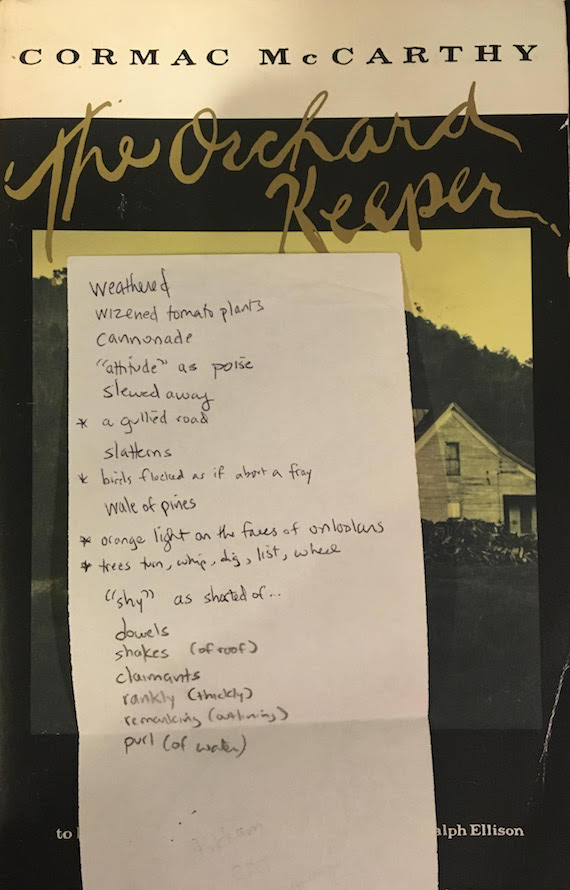 CORMAC McCARTHY
The Orchard
Keeper
weathered
wizened tomato plants
cannonade
"attitude" as poise
slewed away
* a gullied road
slatterns
* birds flocked as if about a fray
wale of pines
* orange light on the faces of onlookers
* trees turn, whip, dig, list, wheel
"shy" as shorted of...
dowels
shakes (of roof)
claimants
rankly (thickly)
remarking (outlining)
purl (of water)
to
alph Ellison